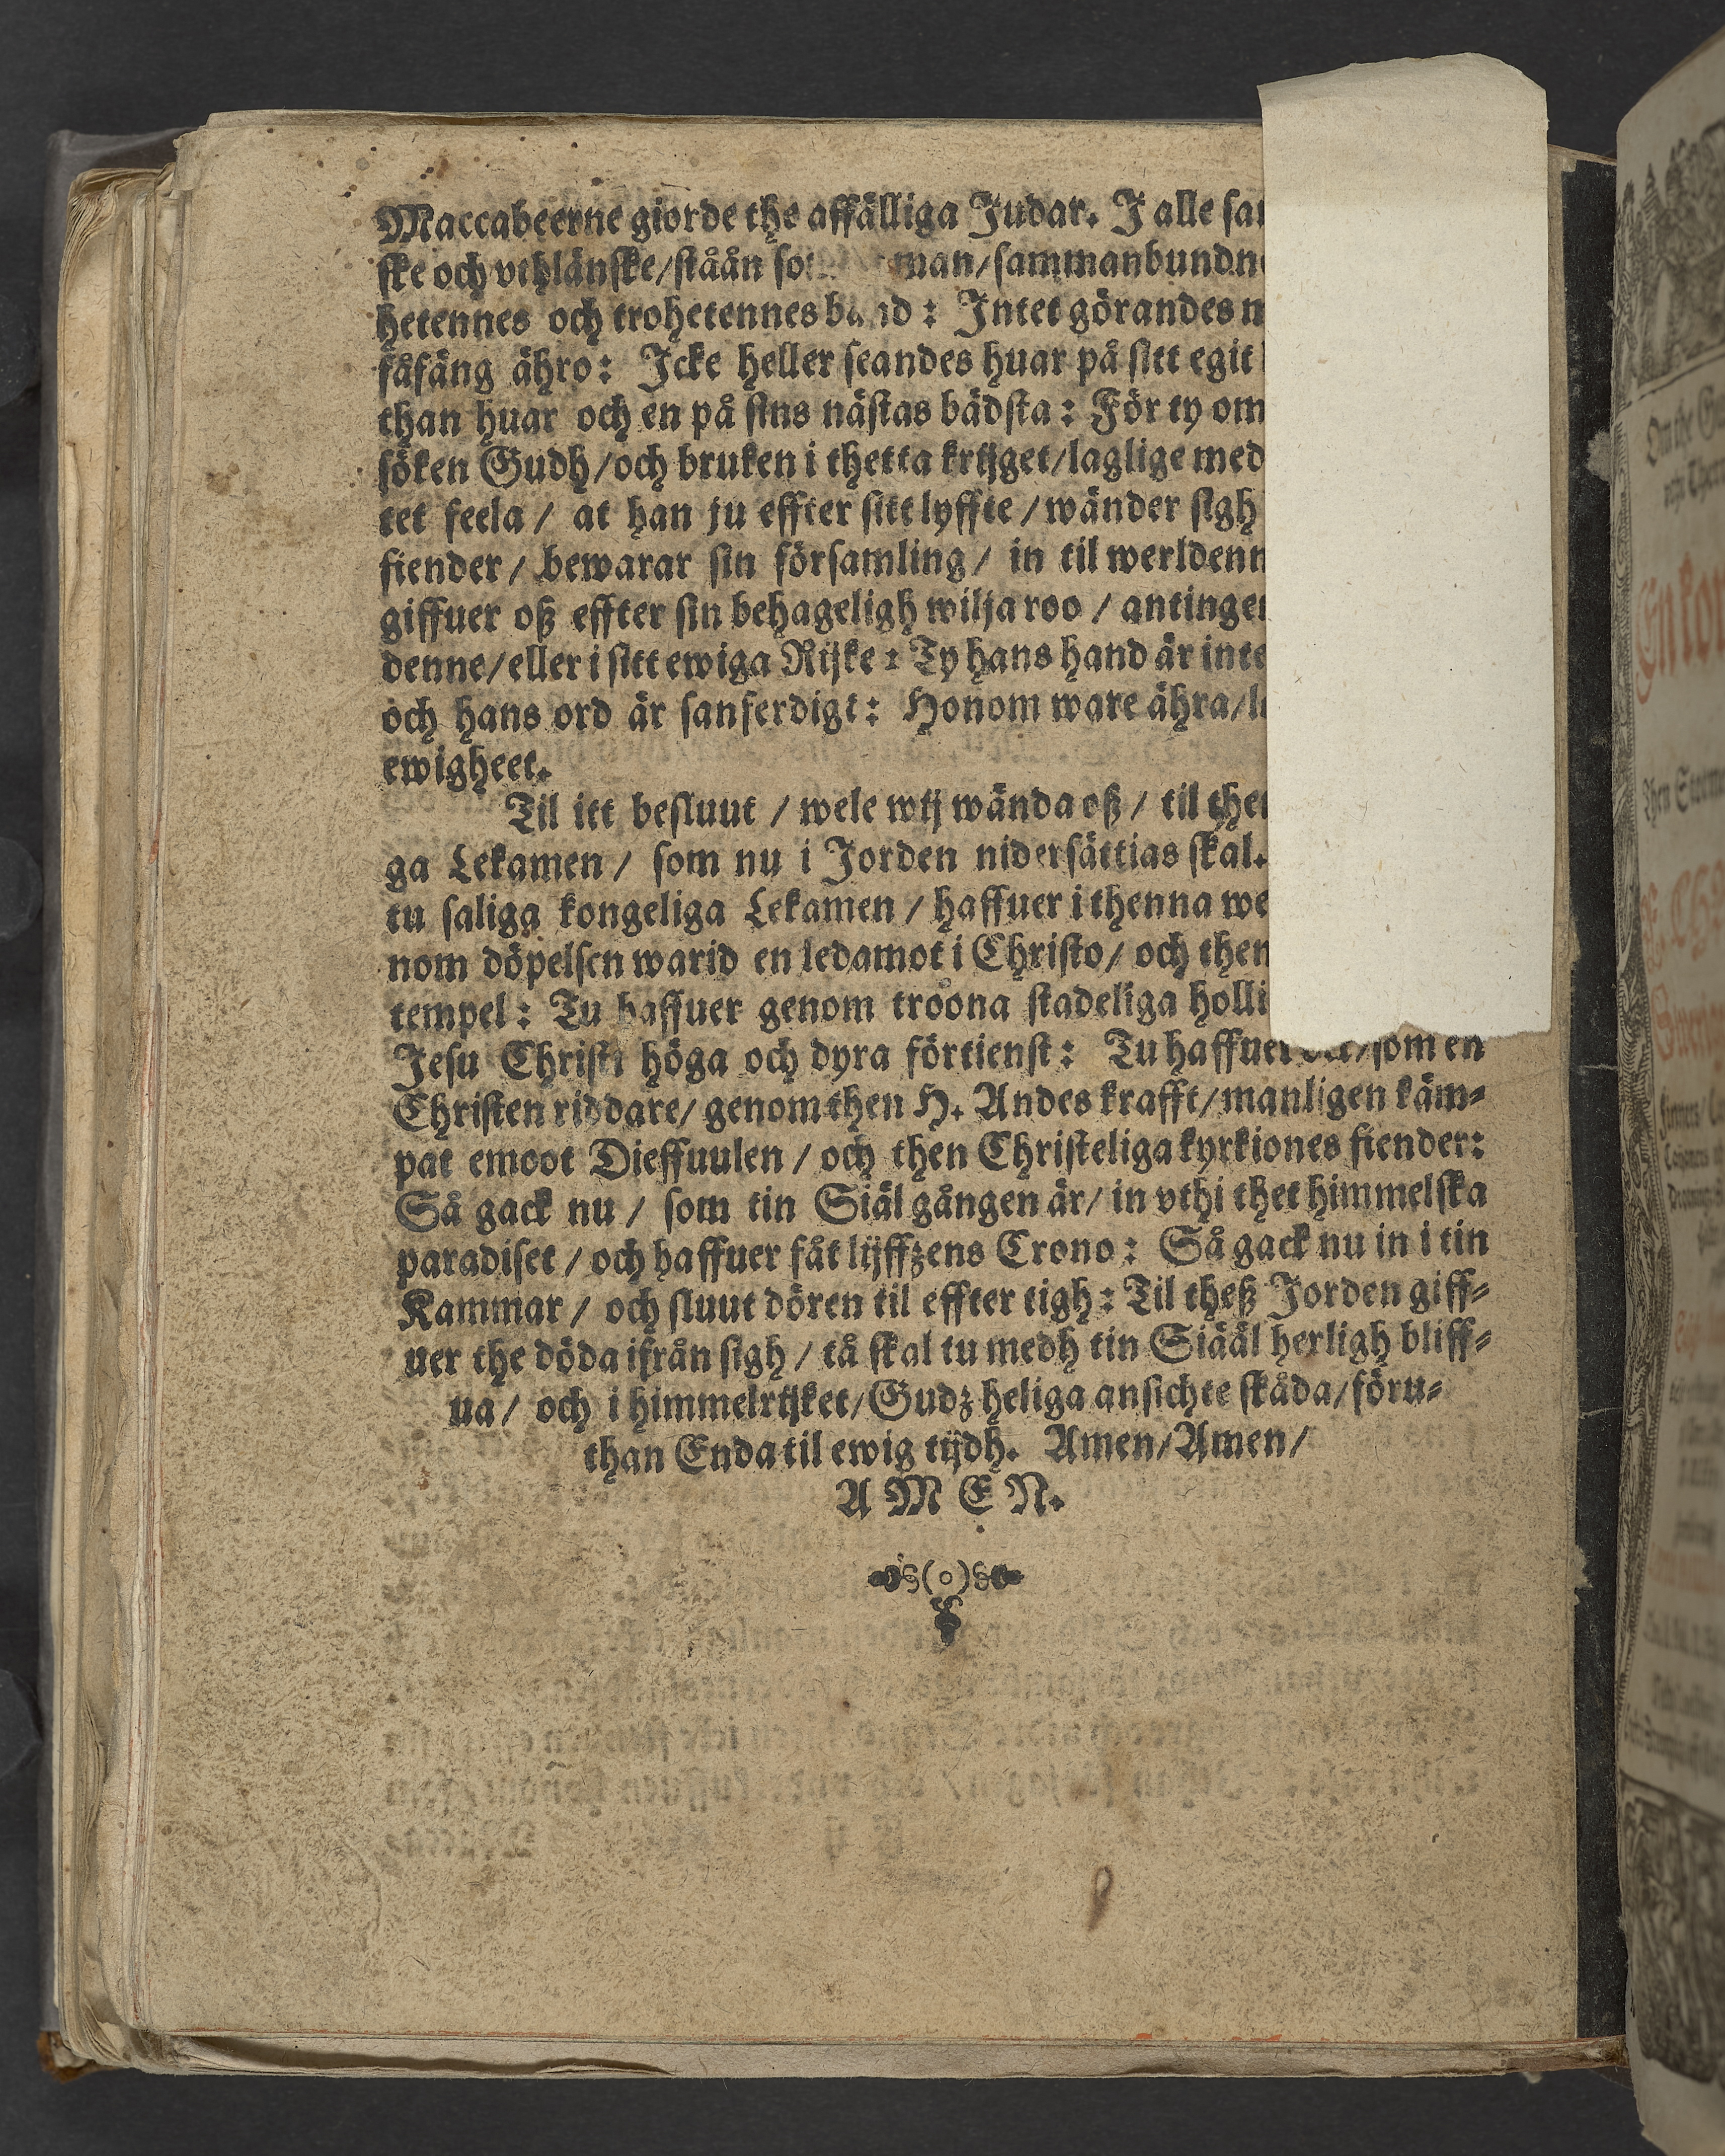 Maccabeerne giorde the affälliga Judar. J alle
ske och vthlänske/ståån man/sammanbundn
hetennes och trohetennes band: Intet görandes
fåfäng ähro: Icke heller seandes huar på sitt egit
than huar och en på sins nästas bädsta: För ty om
söken Gudh/och bruken i thetta krijget/laglige med
tet feela/ at han ju effter sitt lyffte/wänder sigh
fiender/ bewarar sin församling/ in til werldenn
giffuer oß effter sin behageligh wilja roo/ antinge
denne/eller i sitt ewiga Rijke: Ty hans hand är inte
och hans ord är sanferdigt: Honom ware ähra/
ewigheet.
Til itt besluut/ wele wij wända oß/ til the
ga Lekamen/ som nu i Jorden nidersättias skal.
tu saliga kongeliga Lekamen/ haffuer i thenna we
nom döpelsen warid en ledamot i Christo/ och then
tempel: Tu haffuer genom troona stadeliga holli
Jesu Christi höga och dyra förtienst: Tu haffuer som en
Christen riddare/ genom then H. Andes krafft/manligen käm-
pat emoot Dieffuulen/ och then Christeliga kyrkiones fiender:
Så gack nu/ som tin Siäl gången är/ in vthi thet himmelska
paradiset/ och haffuer fåt lijffzens Crono: Så gack nu in i tin
Kammar/ och sluut dören til effter tigh: Til theß Jorden giff-
uer the döda ifrån sigh/ tå skal tu medh tin Siääl herligh bliff-
ua/ och i himmelrijket/Gudz heliga ansichte skåda/föru-
than Enda til ewig tijdh. Amen/Amen/
AMEN.